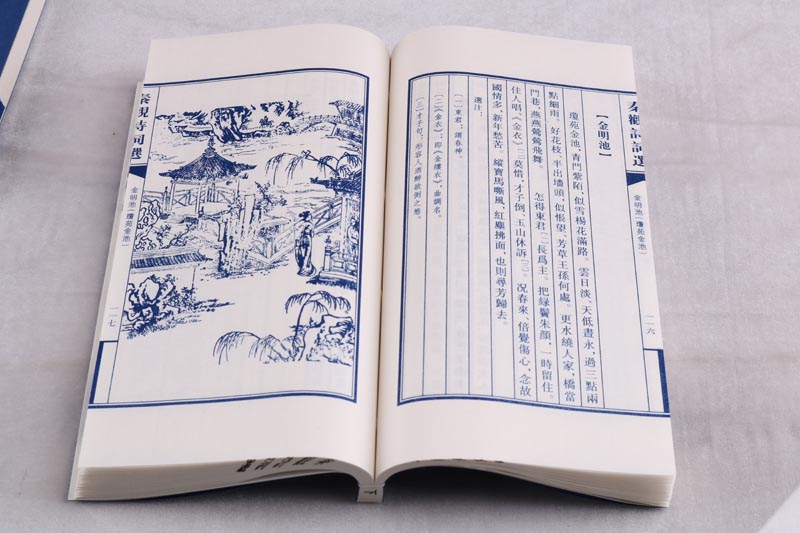 秦觀詩詞選
金明池（瓊苑金池）
一一六
【金明池】
瓊苑金池，青門紫陌，似雪楊花滿路。雲日淡、天低晝永，過三點兩
點細雨。好花枝、半出墻頭，似悵望、芳草王孫何處。更水繞人家，橋當
門巷，燕燕鶯鶯飛舞。　怎得東君［一］長爲主。把緑鬢朱顔，一時留住。
佳人唱、《金衣》［二］莫惜，才子倒、玉山休訴［三］。况春來、倍覺傷心，念故
國情多，新年愁苦。縱寶馬嘶風，紅塵拂面，也則尋芳歸去。
選注：
［一］東君：謂春神。
［二］《金衣》：即《金縷衣》，曲調名。
［三］才子句：形容人酒醉欲倒之態。
秦觀詩詞選
金明池（瓊苑金池）
一一七
下